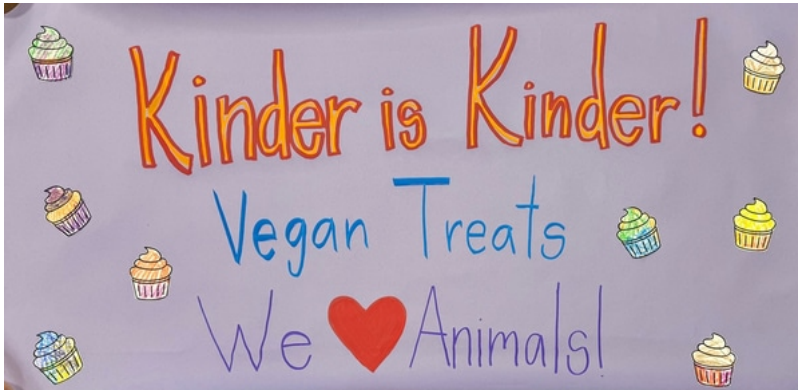 Kinder is Kinder!
Vegan Treats
We ❤ Animals!